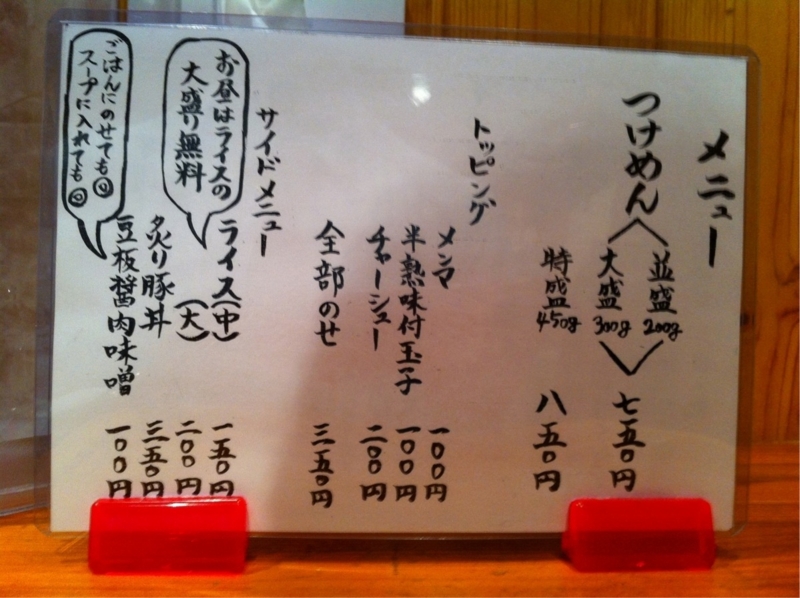 メニュー
つけめん
並盛 200g
大盛 300g
七五〇円
特盛 450g 八五〇円
トッピング
メンマ 一〇〇円
半熟味付玉子 一〇〇円
チャーシュー 二〇〇円
全部のせ 三五〇円
サイドメニュー
ライス(中) 一五〇円
(大) 二〇〇円
お昼はライスの
大盛り無料
炙り豚丼 三五〇円
豆板醤肉味噌 一〇〇円
ごはんにのせても◎
スープに入れても◎